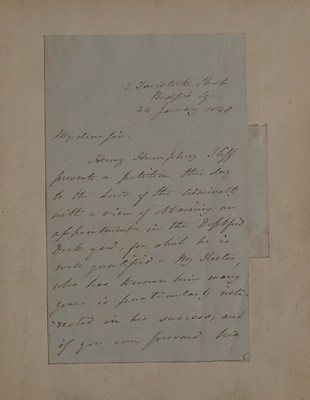 2 Tavistock
Bedford Sq.
24 January 1848
My dear Sir.
Henry Humphrey Iliff
presents a petition this day
to the Lords of the Admiralty
with a view of obtaining an
appointment in the Deptford
Dock yard, for which he is
well qualified - My
who has known him many
years is particularly inte-
rested in his success, and
if you can forward his